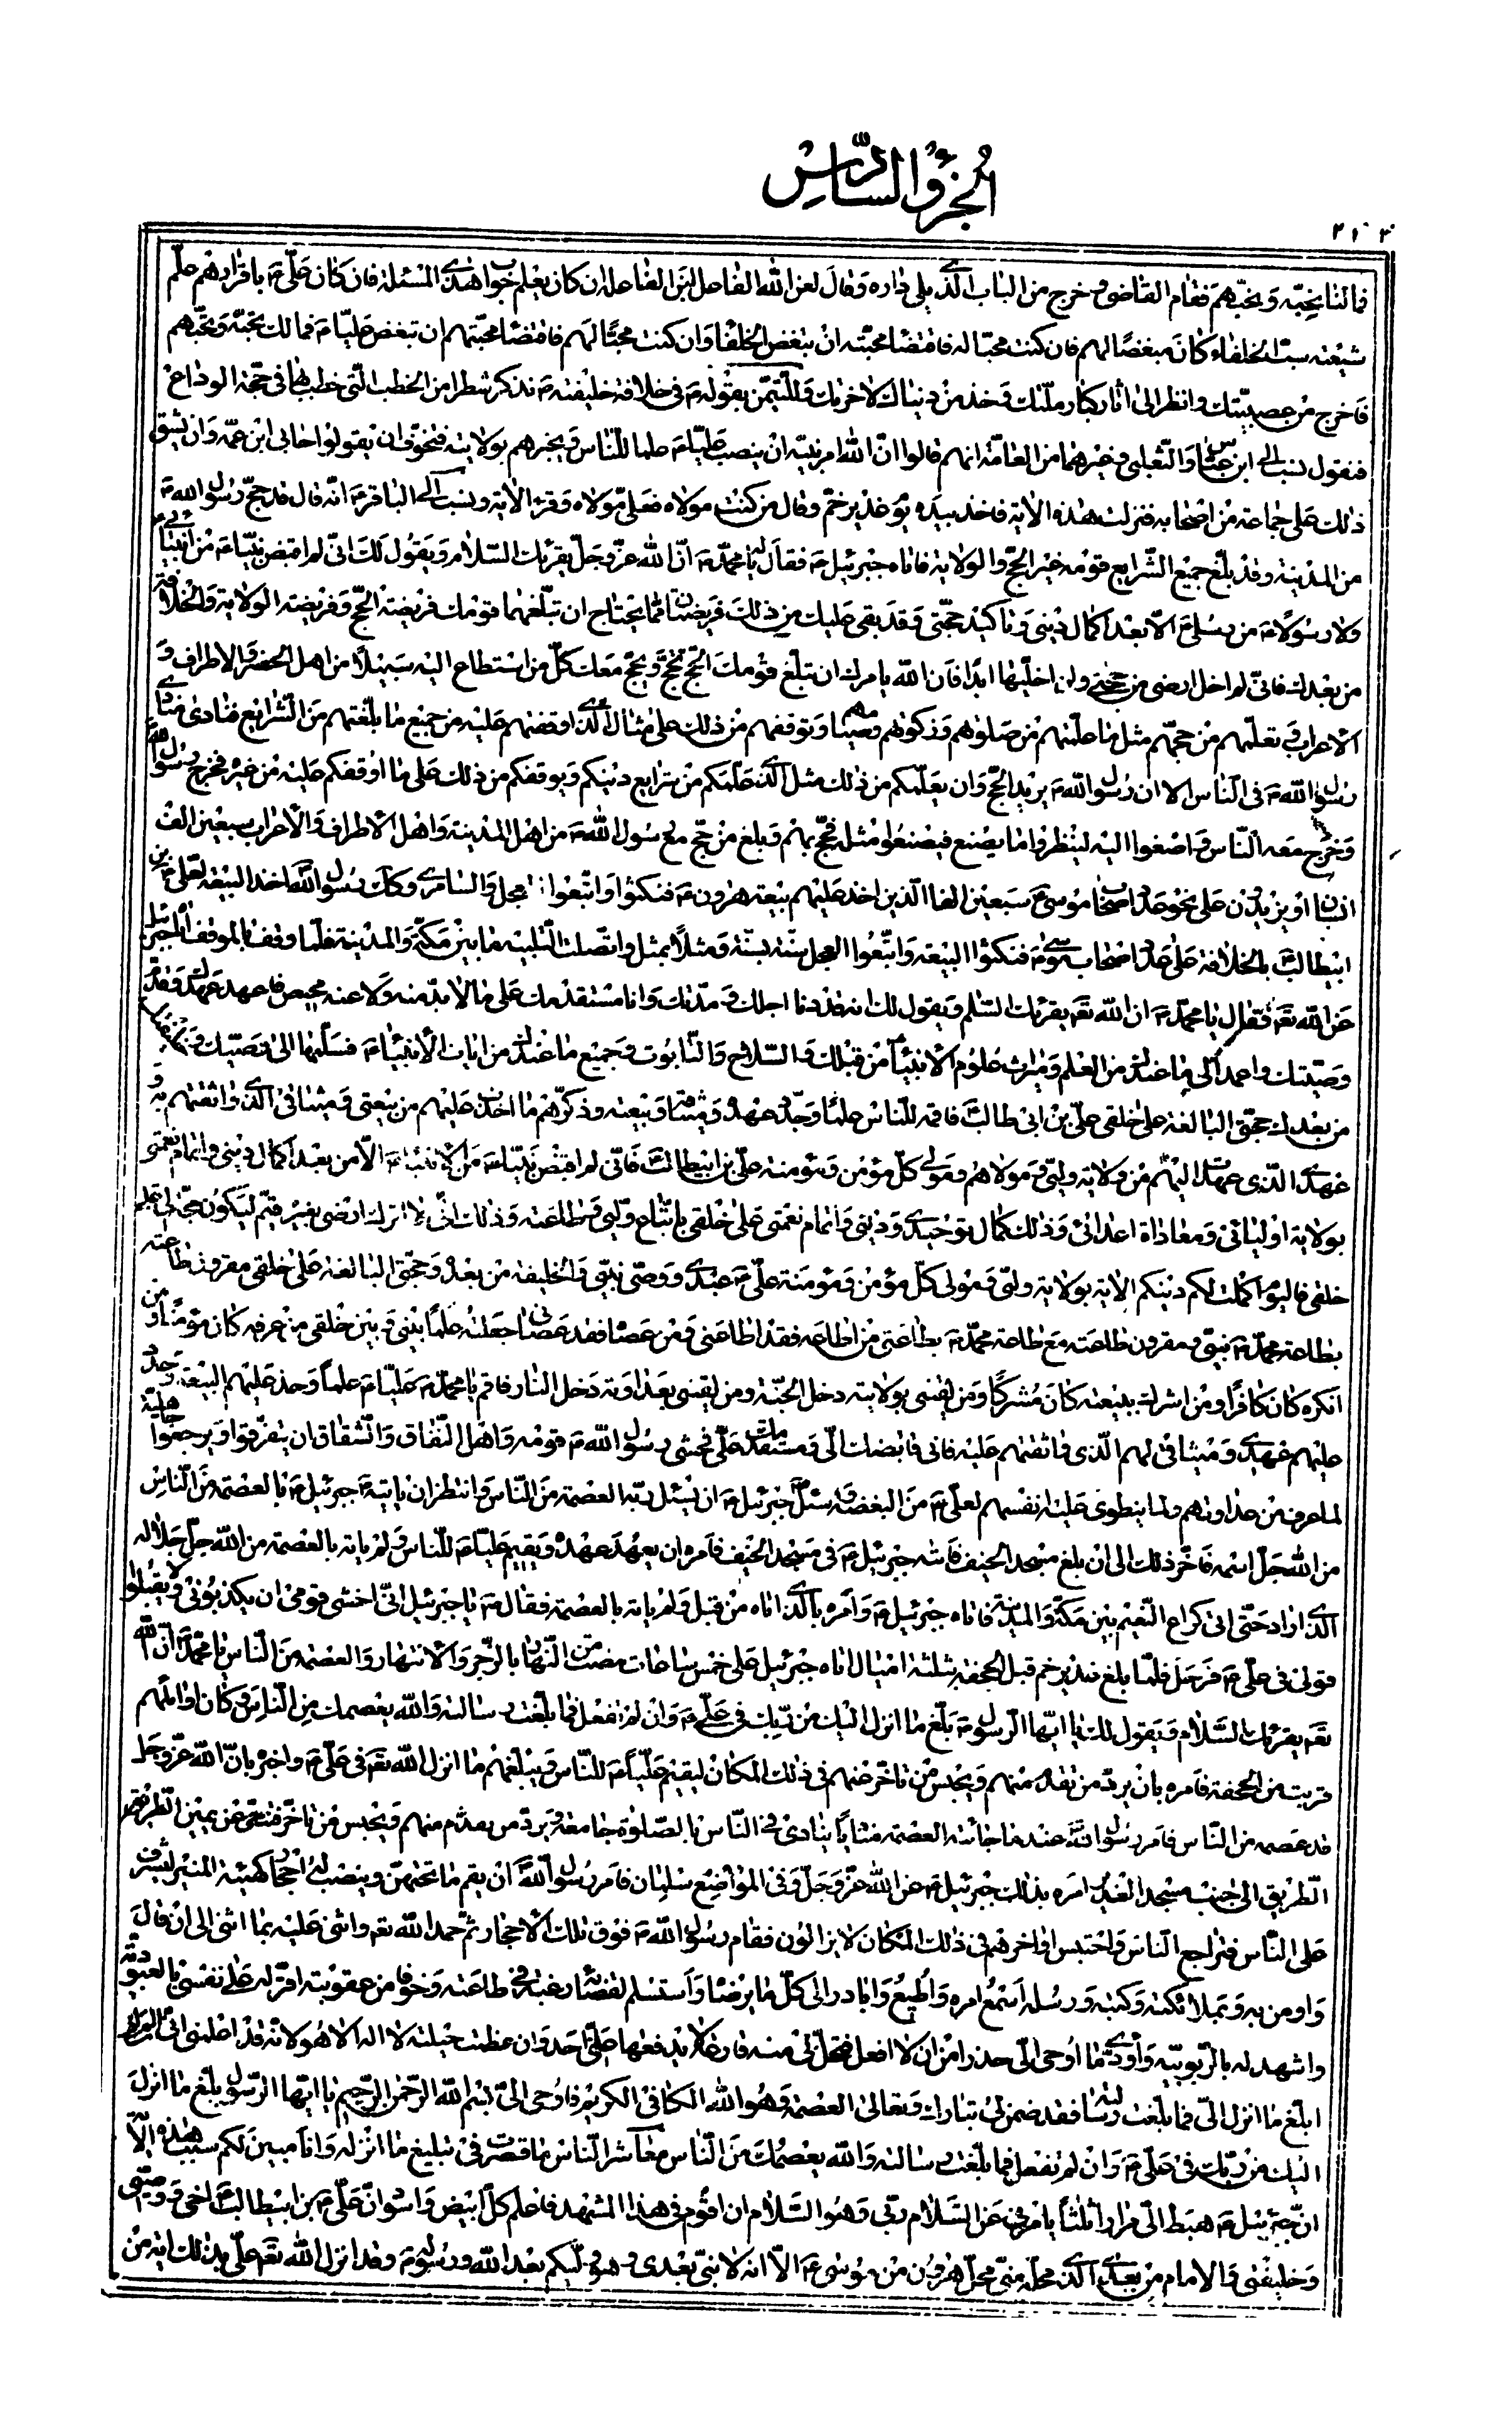 الجزؤ السادس
٢١٠٣
فمالنا نحبّه ويحبّهم فقام القاضى وخرج من الباب الّذى يلى داره وقال لعن الله الفاعل ابن الفاعل ان كان يعلم جواب هذه المسئلة فان كان علىّ ع بافراد هم علّم
شيعته سبّ الخلفاء كان مبغضًا لهم فان كنت محبّا له فاقتضا محبّته ان تبغض الخلفا وان كنت محبًّا لهم فاقتضا محبّتهم ان تبغض عليّا ع فمالك تحبّه وتحبّهم
فاخرج من عصبيّتك وانظر الى اثار كبار ملّتك وخذ من دنياك لاخرتك وللتّيمّن بقوله ع فى خلافة خليفته ع نذكر شطرا من الخطب الّتى خطب بها فى حجّة الوداع
فنقول نسب الى ابن عبّاس والثّعلبى وغيرهما من العامّة انهم قالوا انّ الله امر نبيّه ان ينصب عليّا ع علما للنّاس ويخبرهم بولايته فتخوّف ان يقولوا حابى ابن عمّه وان يشقّ
ذلك على جماعة من اصحابه فنزلت هذه الاية فاخذ بيده يوم غدير خمّ وقال من كنت مولاه فعلىّ مولاه وقرء الاية ونسب الى الباقر ع انّه قال قد حجّ رسول الله ص
من المدينة وقد بلّغ جميع الشّرايع قومه غير الحجّ والولاية فاتاه جبرئيل ع فقال له يا محمّد ص انّ الله عزّ وجلّ يقرئك السّلام ويقول لك انّى لم اقبض نبيّا ع من انبيائى
ولا رسولا ع من رسلى ع الّا بعد اكمال دينى وتاكيد حجّتى وقد بقى عليك من ذلك فريضتان ممّا يحتاج ان تبلّغهما قومك فريضة الحجّ وفريضة الولاية والخلافة
من بعدك فانّى لم اخل ارضى من حجّتى ولن اخليها ابدًا فان الله يامرك ان تبلّغ قومك الحجّ تحجّ ويحجّ معك كلّ من استطاع اليه سبيلًا من اهل الحضر والاطراف و
الاعراب وتعلّمهم من حجّهم مثل ما علّمتهم من صلوٰتهم وزكوٰتهم وصيامهم وتوقفهم من ذلك على مثال الّذى اوقفتهم عليه من جميع ما بلّغتهم من الشّرايع فنادى منادى
رسول الله ص فى النّاس الا ان رسول الله ص يريد الحجّ وان يعلّمكم من ذلك مثل الّذى علّمكم من شرايع دينكم ويوقفكم من ذلك على ما اوقفكم عليه من غيره فخرج رسول الله
وخرج معه النّاس واصغوا اليه لينظروا ما يصنع فيصنعوا مثله فحجّ بهم وبلغ من حجّ مع رسول الله ص من اهل المدينة واهل الاطراف والاعراب سبعين الف
انسان او يزيدون على نحو عدد اصحاب موسى ع سبعين الفا الّذين اخذ عليهم بيعة هرون ع فنكثوا واتّبعوا العجل والسّامرى وكك رسول الله اخذ البيعة لعلى ع بن
ابيطالب بالخلافة على عدد اصحاب موسى ع فنكثوا البيعة واتّبعوا العجل سنّة بسنّة ومثلًا بمثل واتّصلت التّلبية ما بين مكّة والمدينة فلمّا وقف بالموقف اتاه جبرئيل
عن الله تعه فقال يا محمّد ص ان الله تعه يقرئك السّلم ويقول لك انه قد دنا اجلك ومدّتك وانا مستقدمك على ما لا بدّ منه ولا عنه محيص فاعهد عهدك وقدّم
وصيّتك واعمد الى ما عندك من العلم وميراث علوم الانبياء من قبلك والسّلاح والتّابوت وجميع ما عندك من ايات الانبياء ع فسلّمها الى وصيّك وخليفتك
من بعدك حجّتى البالغة على خلقى علىّ بن ابى طالب فاقمه للنّاس علمًا وجدّد عهده وميثاقه وبيعته وذكّرهم ما اخذت عليهم من بيعتى وميثاقى الّذى واثقتهم به و
عهدى الّذى عهدت اليهم من ولاية وليّى ومولاهم ومولى كلّ مؤمن ومؤمنة علىّ بن ابيطالب فانّى لم اقبض نبيّا ع من الانبياء ع الّا من بعد اكمال دينى واتمام نعمتى
بولاية اوليائى ومعاداة اعدائى وذلك كمال توحيدى ودينى واتمام نعمتى على خلقى باتّباع وليّى وطاعته وذلك انّى لا اترك ارضى بغير قيّم ليكون حجّة لى على
خلقى فاليوم اكملت لكم دينكم الاية بولاية وليّى ومولى كلّ مؤمن ومؤمنة علىّ ع عبدى ووصىّ نبيّى والخليفة من بعده وحجّتى البالغة على خلقى مقرون طاعته
بطاعة محمّد ص نبيّى ومقرون طاعته مع طاعة محمّد ص بطاعتى من اطاعه فقد اطاعنى ومن عصاه فقد عصانى جعلته علمًا بينى وبين خلقى من عرفه كان مؤمنًا ومن
انكره كان كافرًا ومن اشرك ببيعته كان مشركًا ومن لقينى بولايته دخل الجنّة ومن لقينى بعداوته دخل النار فاقم يا محمّد ص عليّا ع علمًا وخذ عليهم البيعة وجدّد
عليهم عهدى وميثاقى لهم الّذى واثقتهم عليه فانى قابضك الىّ ومستقدمك علىّ فخشى رسول الله ص قومه واهل النّفاق والشّقاق ان يتفرّقوا ويرجعوا جاهليّة
لما عرف من عداوتهم ولما ينطوى عليه انفسهم لعلىّ ع من البغضة وسئل جبرئيل ع ان يسئل ربّه العصمة من النّاس وانتظر ان ياتيه جبرئيل ع بالعصمة من النّاس
من الله جلّ اسمه فاخّر ذلك الى ان بلغ مسجد الخيف فاتاه جبرئيل ع فى مسجد الخيف فامره ان يعهد عهده ويقيم عليّا ع للنّاس ولم ياته بالعصمة من الله جلّ جلاله
الّذى اراد حتّى اتى كراع النّعيم بين مكّة والمدينة فاتاه جبرئيل ع وامره بالّذى اتاه من قبل ولم ياته بالعصمة فقال ص يا جبرئيل انّى اخشى قومى ان يكذّبونى ولا يقبلوا
قولى فى علىّ ع فرحل فلمّا بلغ غدير خم قبل الجحفة بثلثة اميال اتاه جبرئيل على خمس ساعات مضت من النّهار بالزّجر والانتهار والعصمة من النّاس يا محمّد ص انّ الله
تعه يقرئك السّلام ويقول لك يا ايّها الرسول ص بلّغ ما انزل اليك من ربّك فى علىّ ع وان لم تفعل فما بلّغت رسالته والله يعصمك من النّاس وكان اوائلهم
قريبت من الجحفة فامره بان يردّ من تقدّم منهم ويحبس من تاخّر عنهم فى ذلك المكان ليقيم عليّا ع للنّاس ويبلّغهم ما انزل الله تعه فى علىّ ع واخبره بانّ الله عزّ وجلّ
قد عصمه من النّاس فامر رسول الله عند ما جائته العصمة مناديًا ينادى فى النّاس بالصّلوٰة جامعة ويردّ من تقدّم منهم ويحبس من تاخّر فتنحّى عن يمين الطّريق
الطّريق الى جنب مسجد الغدير امره بذلك جبرئيل ع عن الله عزّ وجلّ وفى المواضع سلمان فامر رسول الله ان يقم ما تحتهنّ وينصب له احجار كهيئة المنبر ليشرف
على النّاس فتراجع النّاس واحتبس اواخرهم فى ذلك المكان لا يزالون فقام رسول الله ص فوق تلك الاحجار ثمّ حمد الله تعه واثنى عليه بما اثنى الى ان قال
واومن به وبملائكته وكتبه ورسله اسمع امره واطيع وابادر الى كلّ ما يرضاه واستسلم لقضائه رغبة فى طاعته وخوفا من عقوبته اقرّ له على نفسى بالعبوديّة
واشهد له بالرّبوبيّة واؤدّى ما اوحى الىّ حذرا من ان لا افعل فتحلّ بى منه قارعة لا يدفعها عنّى احد وان عظمت حيلته لا اله الا هو لانّه قد اعلمنى انّى ان لم
ابلّغ ما انزل الىّ فما بلّغت رسالته فقد ضمن لى تبارك وتعالى العصمة وهو الله الكافى الكريم فاوحى الىّ بسم الله الرّحمٰن الرّحيم يا ايّها الرّسول بلّغ ما انزل
اليك من ربّك فى علىّ ع وان لم تفعل فما بلّغت رسالته والله يعصمك من النّاس معاشر النّاس ما قصّرت فى تبليغ ما انزله وانا مبين لكم سبب هذه الاية
انّ جبرئيل ع هبط الىّ مرارا ثلثًا يامرنى عن السّلام ربّى وهو السّلام ان اقوم فى هذا المشهد فاعلم كلّ ابيض واسود انّ علىّ ع بن ابيطالب اخى ووصيّى
وخليفتى والامام من بعدى الّذى محلّه منّى محلّ هرون من موسى ع الّا انه لا نبىّ بعدى وهو وليّكم بعد الله ورسوله ص وقد انزل الله تعه علىّ بذلك اية من